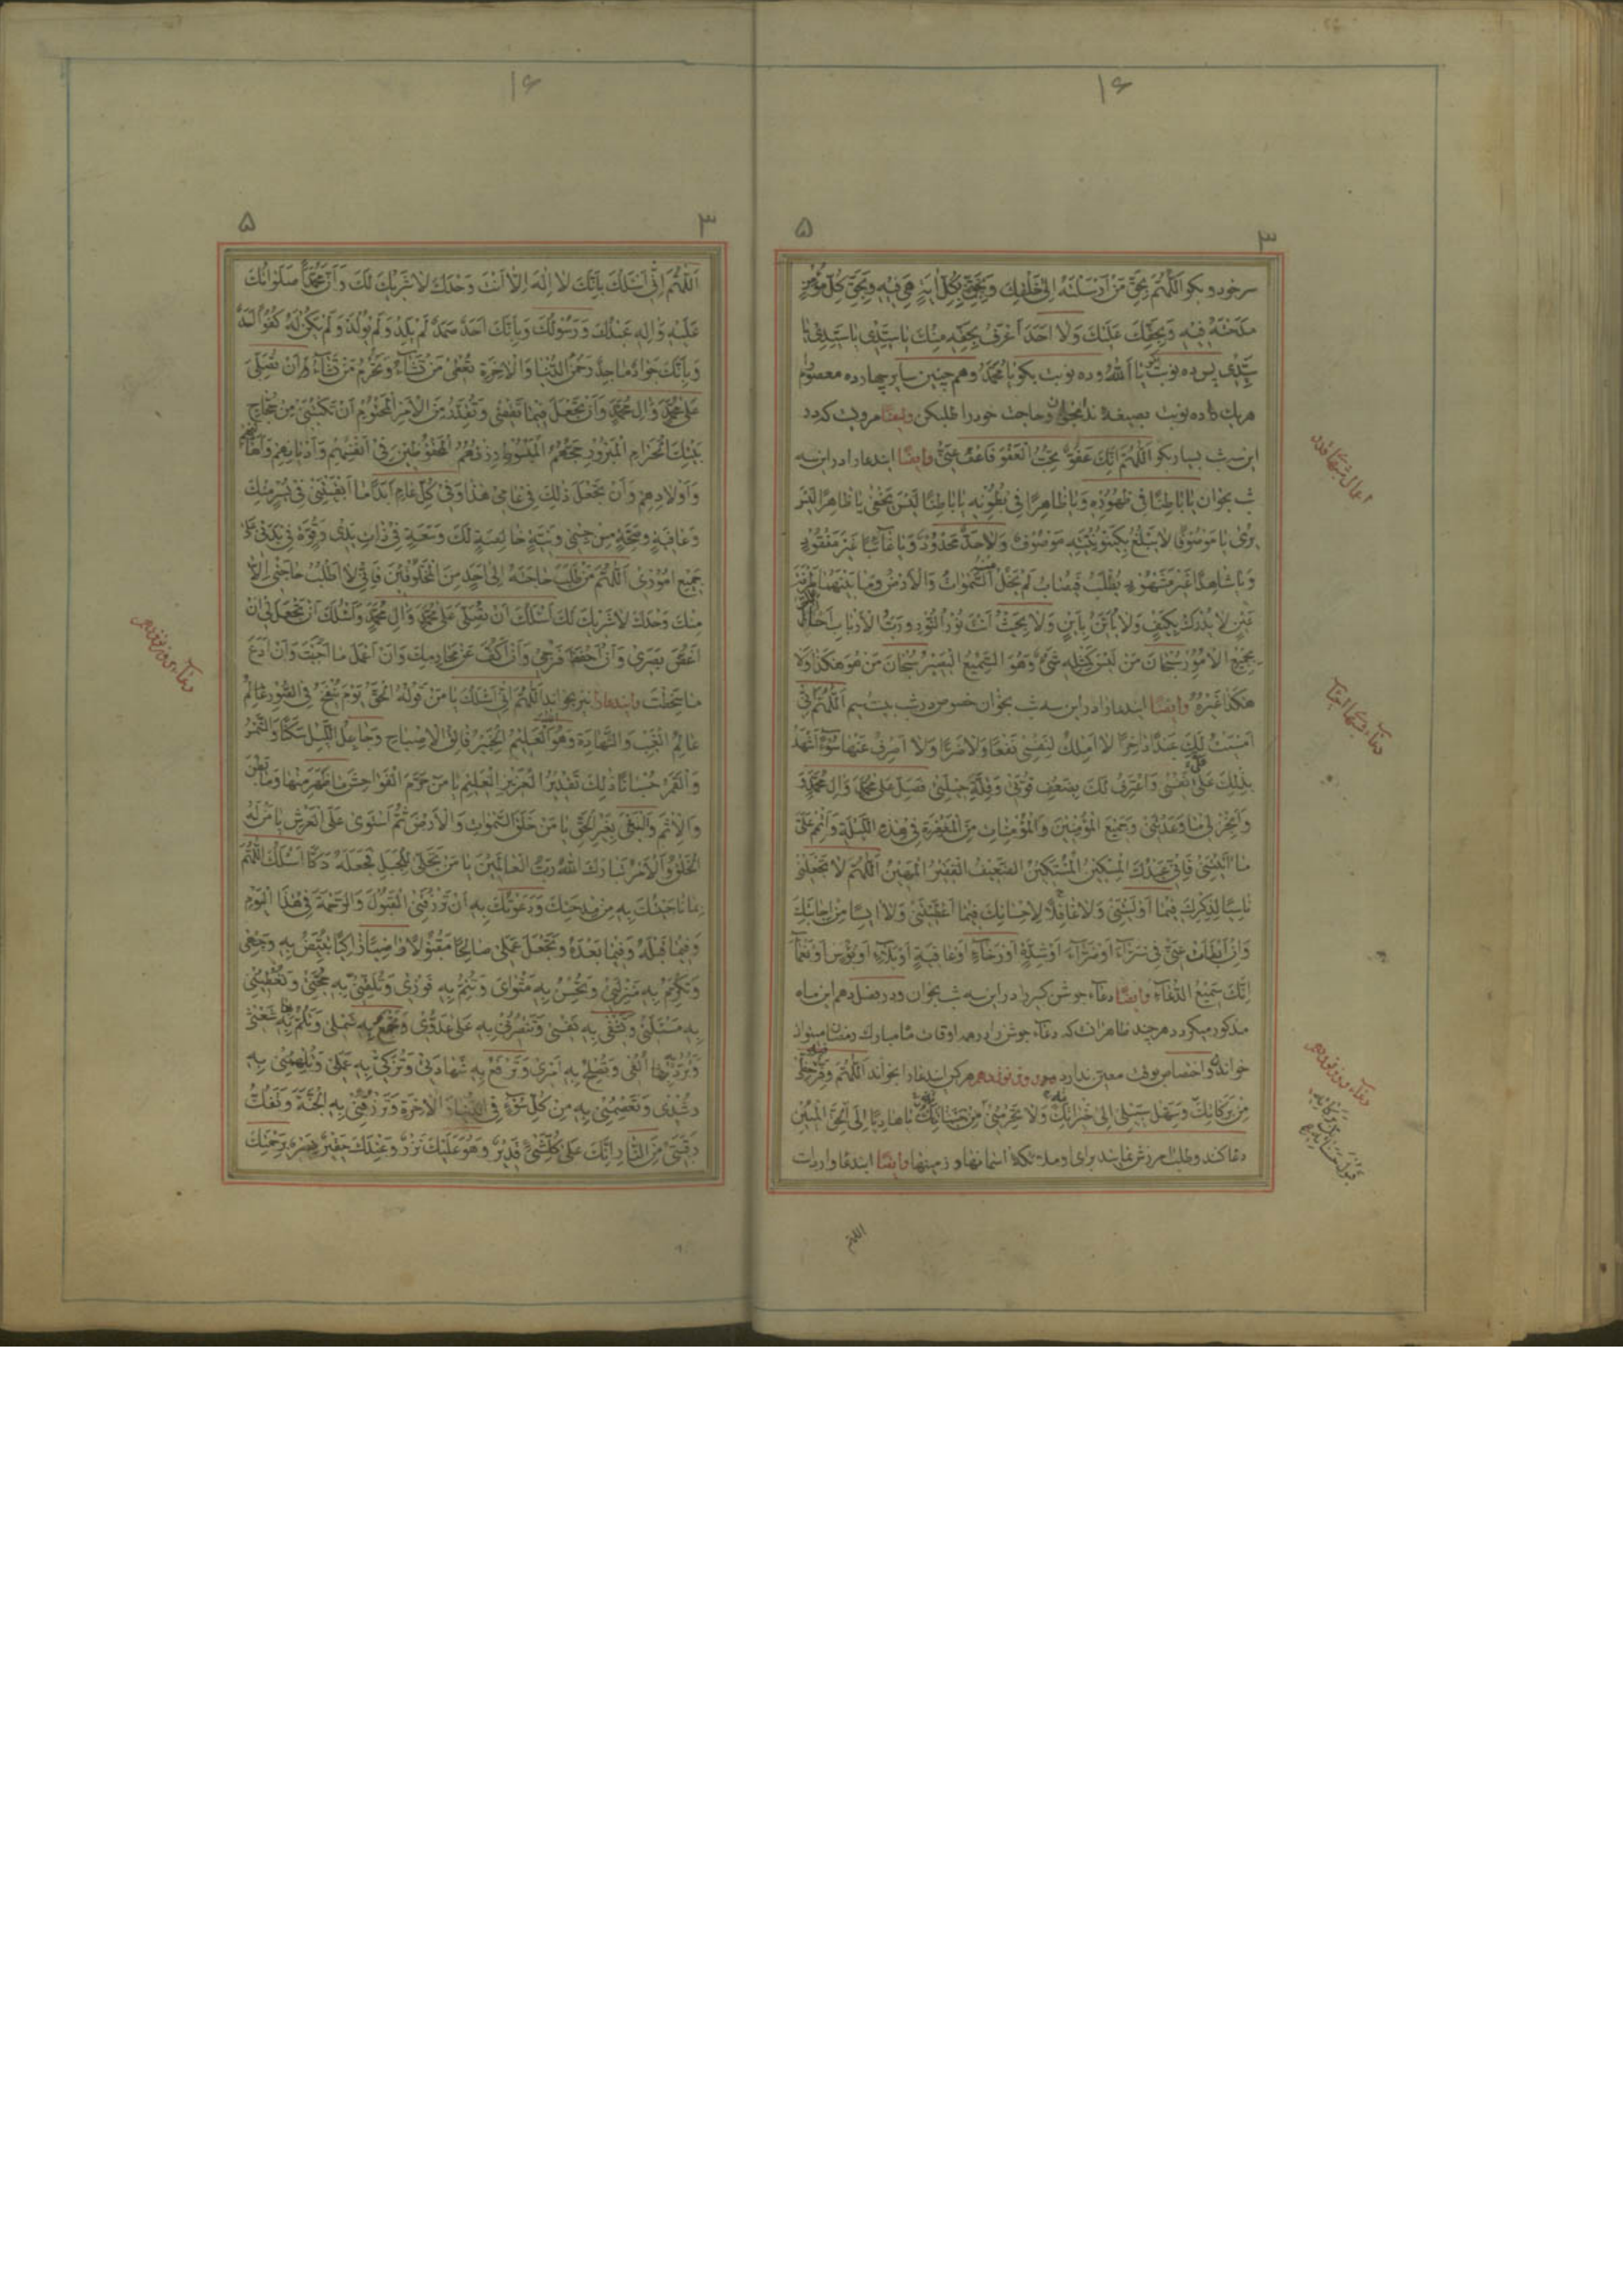 ۱۶
۳
۵
سر خود و بکو اَللّٰهُمَّ بِحَقِّ مَنْ اَرْسَلْتَهُ اِلىٰ خَلْقِكَ وَبِحَقِّ كُلِّ اٰيَةٍ هِيَ فِيهِ وَبِحَقِّ كُلِّ مُؤْمِنٍ
مَدَحْتَهُ فِيهِ وَبِحَقِّكَ عَلَيْكَ وَلاٰ اَحَدَ اَعْرَفُ بِحَقِّهِ مِنْكَ يا سَيِّدِى يا سَيِّدِى يا
سَيِّدِى پس ده نوبت یا اَللهُ و ده نوبت بکو یا مُحَمَّدُ و هم چنین سایر چهارده معصوم
هر یك را ده نوبت بصیغهٔ ندا بخوان و حاجت خود را طلب کن وایضًا مرویست که در
این سه شب بسیار بکو اَللّٰهُمَّ اِنَّكَ عَفُوٌّ تُحِبُّ الْعَفْوَ فَاعْفُ عَنّى وایضًا ایندعا را در این سه
شب بخوان يا بٰاطِنًا فى ظُهُورِهِ وَيا ظٰاهِرًا فِى بُطُونِهِ يا بٰاطِنًا لَيْسَ يَخْفىٰ يا ظٰاهِرًا لَيْسَ
يُرىٰ يا مَوْصُوفًا لاٰ يَبْلُغُ بِكَيْنُونَتِهِ مَوْصُوفٌ وَلاٰ حَدٌّ مَحْدُودٌ وَيا غٰائِبًا غَيْرَ مَفْقُودٍ
وَيا شٰاهِدًا غَيْرَ مَشْهُودٍ يُطْلَبُ فَيُصٰابُ لَمْ يَخْلُ مِنْهُ السَّمٰوٰاتُ وَالْاَرْضُ وَمٰا بَيْنَهُمٰا طَرْفَةَ
عَيْنٍ لاٰ يُدْرَكُ بِكَيْفٍ وَلاٰ يُاَيَّنُ بِاَيْنٍ وَلاٰ بِحَيْثُ اَنْتَ نُورُ النُّورِ وَرَبُّ الْاَرْبٰابِ اَحَطْتَ
بِجَمِيعِ الْاُمُورِ سُبْحٰانَ مَنْ لَيْسَ كَمِثْلِهِ شَىْءٌ وَهُوَ السَّمِيعُ الْبَصِيرُ سُبْحٰانَ مَنْ هُوَ هٰكَذٰا وَلاٰ
هٰكَذٰا غَيْرُهُ وایضًا ایندعا را در این سه شب بخوان خصوص در شب بیست سیم اَللّٰهُمَّ اِنّى
اَمْسَيْتُ لَكَ عَبْدًا دٰاخِرًا لاٰ اَمْلِكُ لِنَفْسِى نَفْعًا وَلاٰ ضَرًّا وَلاٰ اَصْرِفُ عَنْهٰا سُوءً اَشْهَدُ
بِذٰلِكَ عَلىٰ نَفْسِى وَاَعْتَرِفُ لَكَ بِضَعْفِ قُوَّتِى وَقِلَّةِ حِيلَتِى فَصَلِّ عَلىٰ مُحَمَّدٍ وَاٰلِ مُحَمَّدٍ وَ
وَاَنْجِزْ لِى مٰا وَعَدْتَنِى وَجَمِيعَ الْمُؤْمِنِينَ وَالْمُؤْمِنٰاتِ مِنَ الْمَغْفِرَةِ فِى هٰذِهِ اللَّيْلَةِ وَاَتْمِمْ عَلَىَّ
مٰا اٰتَيْتَنِى فَاِنّى عَبْدُكَ الْمِسْكِينُ الْمُسْتَكِينُ الضَّعِيفُ الْفَقِيرُ الْمَهِينُ اَللّٰهُمَّ لاٰ تَجْعَلْنِى
نٰاسِيًا لِذِكْرِكَ فِيمٰا اَوْلَيْتَنِى وَلاٰ غٰافِلًا لِاِحْسٰانِكَ فِيمٰا اَعْطَيْتَنِى وَلاٰ اٰيِسًا مِنْ اِجٰابَتِكَ
وَاِنْ اَبْطَاَتْ عَنّى فِى سَرّٰاءَ اَوْ ضَرّٰاءَ اَوْ شِدَّةٍ اَوْ رَخٰاءٍ اَوْ عٰافِيَةٍ اَوْ بَلٰاءٍ اَوْ بُؤْسٍ اَوْ نَعْمٰاءَ
اِنَّكَ سَمِيعُ الدُّعٰاءِ وایضًا دعاء جوشن کبیر را در این سه شب بخوان و در فصل دهم این ماه
مذکور میکردد هر چند ظاهر انست که دعاء جوشن را در همه اوقات ماه مبارك رمضان میتواند
خواند و اختصاص بوقت معین ندارد روز نوزدهم هر کس ایندعا را بخواند اَللّٰهُمَّ وَفِّرْ حَظّى
مِنْ بَرَكٰاتِكَ وَسَهِّلْ سَبِيلِى اِلىٰ خَيْرٰاتِكَ وَلاٰ تَحْرِمْنِى مِنْ حَسَنٰاتِكَ يا هٰادِيًا اِلَى الْحَقِّ الْمُبِينِ
دعا کند و طلب آمرزش نمایند برای او ملائکهٔ اسمانها و زمینها وایضًا ایندعا وارد است
اللهم
اعمال شبهای قدر
دعاء روز نوزدهم
۱۶
۳
۵
اَللّٰهُمَّ اِنّى اَسْئَلُكَ بِاَنَّكَ لاٰ اِلٰهَ اِلّاٰ اَنْتَ وَحْدَكَ لاٰ شَرِيكَ لَكَ وَاَنَّ مُحَمَّدًا صَلَوٰاتُكَ
عَلَيْهِ وَاٰلِهِ عَبْدُكَ وَرَسُولُكَ وَبِاَنَّكَ اَحَدٌ صَمَدٌ لَمْ يَلِدْ وَلَمْ يُولَدْ وَلَمْ يَكُنْ لَهُ كُفُوًا اَحَدٌ
وَبِاَنَّكَ جَوٰادٌ مٰاجِدٌ رَحْمٰنُ الدُّنْيٰا وَالْاٰخِرَةِ تُعْطِى مَنْ تَشٰاءُ وَتَحْرِمُ مَنْ تَشٰاءُ اَنْ تُصَلِّىَ
عَلىٰ مُحَمَّدٍ وَاٰلِ مُحَمَّدٍ وَاَنْ تَجْعَلَ فِيمٰا تَقْضِى وَتُقَدِّرُ مِنَ الْاَمْرِ الْمَحْتُومِ اَنْ تَكْتُبَنِى مِنْ حُجّٰاجِ
بَيْتِكَ الْحَرٰامِ الْمَبْرُورِ حَجُّهُمُ الْمَيْسُورِ رِزْقُهُمُ الْمَحْفُوظِينَ فِى اَنْفُسِهِمْ وَاَدْيٰانِهِمْ
وَاَوْلٰادِهِمْ وَاَنْ تَجْعَلَ ذٰلِكَ فِى عٰامِى هٰذٰا وَفِى كُلِّ عٰامٍ اَبَدًا مٰا اَبْقَيْتَنِى فِى يُسْرٍ مِنْكَ
وَعٰافِيَةٍ وَصِحَّةٍ مِنْ جِسْمِى وَنِيَّةٍ خٰالِصَةٍ لَكَ وَسَعَةٍ فِى ذٰاتِ يَدِى وَقُوَّةٍ فِى بَدَنِى عَلىٰ
جَمِيعِ اُمُورِى اَللّٰهُمَّ مَنْ طَلَبَ حٰاجَةً اِلىٰ اَحَدٍ مِنَ الْمَخْلُوقِينَ فَاِنّى لاٰ اَطْلُبُ حٰاجَتِى اِلّاٰ
مِنْكَ وَحْدَكَ لاٰ شَرِيكَ لَكَ اَسْئَلُكَ اَنْ تُصَلِّىَ عَلىٰ مُحَمَّدٍ وَاٰلِ مُحَمَّدٍ وَاَسْئَلُكَ اَنْ تَجْعَلَنِى اَنْ
اَغُضَّ بَصَرِى وَاَنْ اَحْفَظَ فَرْجِى وَاَنْ اَكُفَّ عَنْ مَحٰارِمِكَ وَاَنْ اَعْمَلَ مٰا اَحْبَبْتَ وَاَنْ اَدَعَ
مٰا سَخِطْتَ وایندعا را نیز بخواند اَللّٰهُمَّ اِنّى اَسْئَلُكَ يا مَنْ قَوْلُهُ الْحَقُّ يَوْمَ يُنْفَخُ فِى الصُّورِ عٰالِمُ
عٰالِمُ الْغَيْبِ وَالشَّهٰادَةِ وَهُوَ الْعَلِيمُ الْخَبِيرُ فٰالِقُ الْاِصْبٰاحِ وَجٰاعِلُ اللَّيْلِ سَكَنًا وَالشَّمْسَ
وَالْقَمَرَ حُسْبٰانًا ذٰلِكَ تَقْدِيرُ الْعَزِيزِ الْعَلِيمِ يا مَنْ حَرَّمَ الْفَوٰاحِشَ مٰا ظَهَرَ مِنْهٰا وَمٰا بَطَنَ
وَالْاِثْمَ وَالْبَغْىَ بِغَيْرِ الْحَقِّ يا مَنْ خَلَقَ السَّمٰوٰاتِ وَالْاَرْضَ ثُمَّ اسْتَوىٰ عَلَى الْعَرْشِ يا مَنْ لَهُ
الْخَلْقُ وَالْاَمْرُ تَبٰارَكَ اللهُ رَبُّ الْعٰالَمِينَ يا مَنْ تَجَلّىٰ لِلْجَبَلِ فَجَعَلَهُ دَكًّا اَسْئَلُكَ اللّٰهُمَّ
بِمٰا نٰاجَيْتُكَ بِهِ مِنْ مِدْحَتِكَ وَدَعَوْتُكَ بِهِ اَنْ تَرْزُقَنِى الْقَبُولَ وَالرَّحْمَةَ فِى هٰذَا الْيَوْمِ
وَفِيمٰا قَبْلَهُ وَفِيمٰا بَعْدَهُ وَتَجْعَلَ عَمَلِى صٰالِحًا مَقْبُولًا زٰاكِيًا تُبَيِّضُ بِهِ وَجْهِى
وَتُكْرِمُ بِهِ مَنْزِلِى وَتُحْسِنُ بِهِ مَثْوٰاىَ وَتُتِمُّ بِهِ فَوْزِى وَتُلَقِّنُنِى بِهِ حُجَّتِى وَتُعْطِيَنِى
بِهِ مَسْئَلَتِى وَتَشْفِى بِهِ نَفْسِى وَتَنْصُرُنِى بِهِ عَلىٰ عَدُوِّى وَتَجْمَعُ بِهِ شَمْلِى وَتَلُمُّ بِهٰا شَعْثِى
وَتَرُدُّ بِهٰا اُلْفَتِى وَتُصْلِحُ بِهِ اَمْرِى وَتَرْفَعُ بِهِ شَهٰادَتِى وَتُزَكّى بِهِ عَمَلِى وَتُلْهِمُنِى بِهِ
رُشْدِى وَتَعْصِمُنِى بِهِ مِنْ كُلِّ سُوءٍ فِى الدُّنْيٰا وَالْاٰخِرَةِ وَتَرْزُقُنِى بِهِ الْجَنَّةَ وَتَفُكُّ
رَقَبَتِى مِنَ النّٰارِ اِنَّكَ عَلىٰ كُلِّ شَىْءٍ قَدِيرٌ وَهُوَ عَلَيْكَ نَزْرٌ وَعِنْدَكَ حَقِيرٌ يَسِيرٌ بِرَحْمَتِكَ
دعاء روز نوزدهم